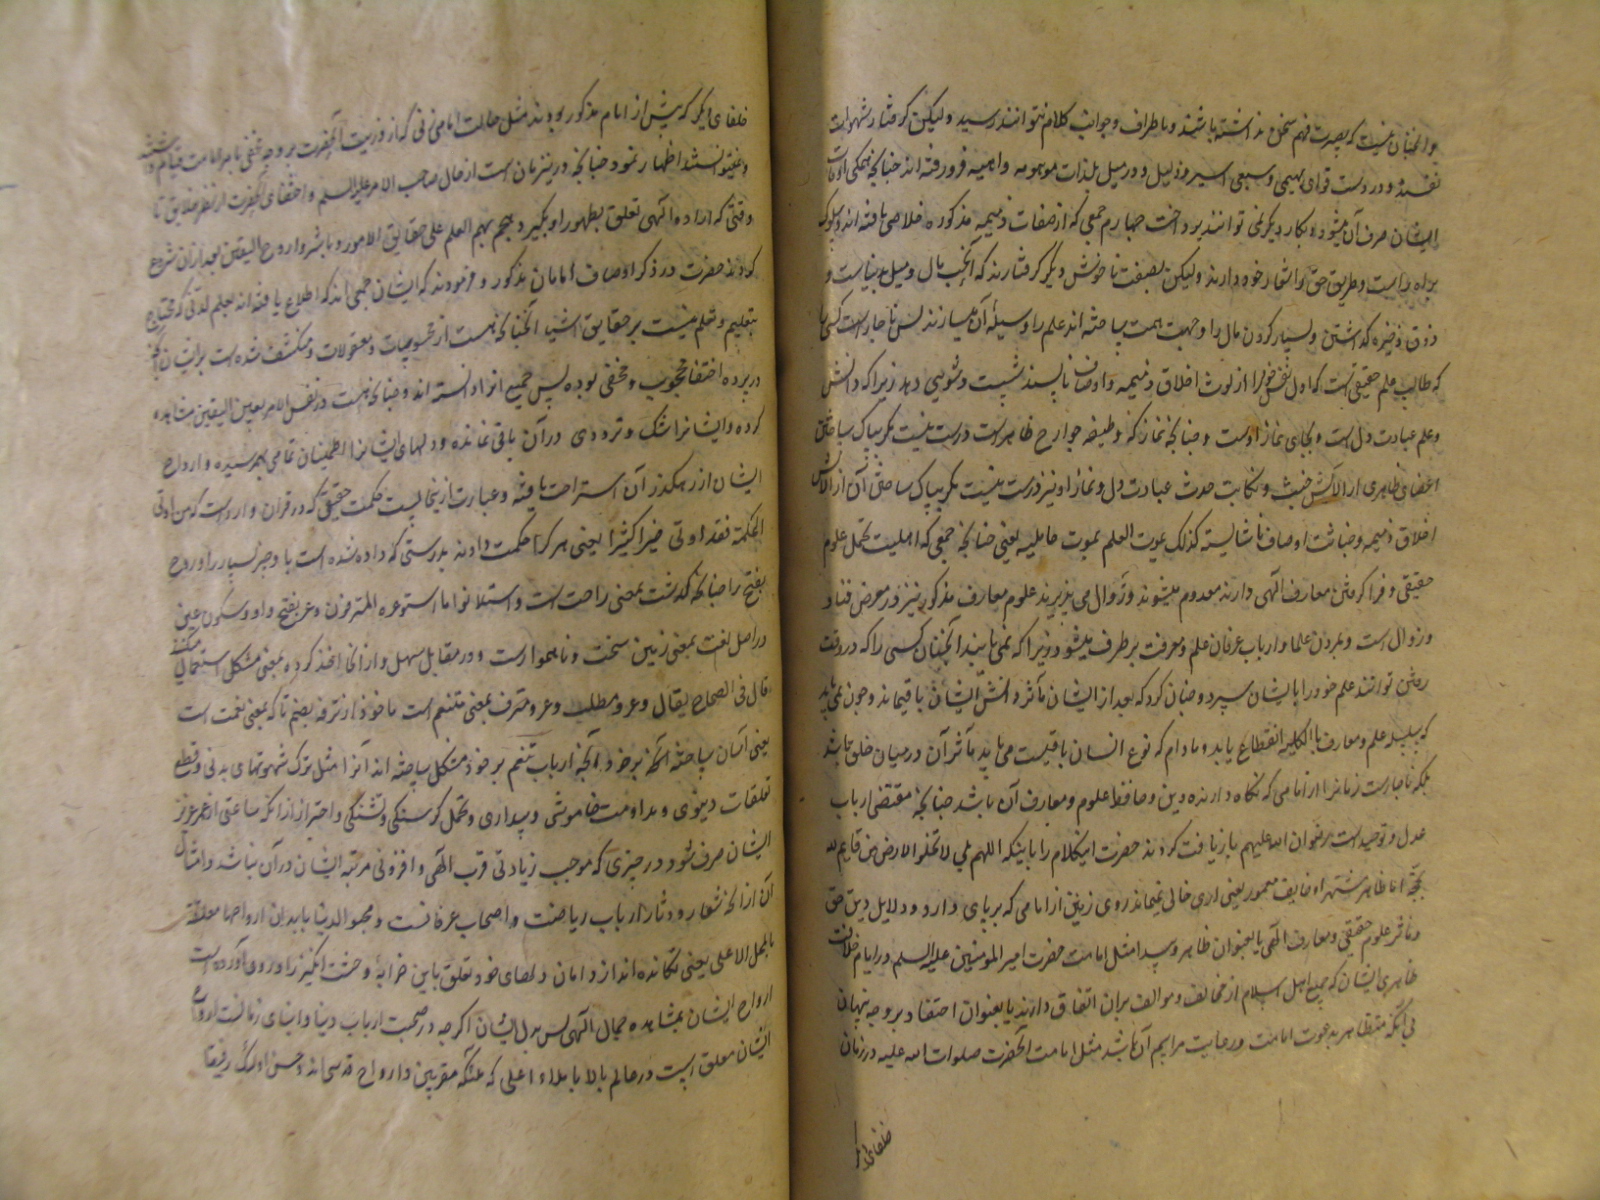 و آنچنان نیست که بصیرت فهم سخن نداشته باشند و باطراف و جوانب کلام نتوانند رسید ولیکن گرفتار شهوات
نفسند و در دست قوای بهیمی و سبعی اسیر و ذلیل و در میل بلذات موهومه واهیه فرو رفته اند چنانچه همگی اوقات
ایشان صرف آن میشود و بکار دیگر نمی توانند پرداخت چهارم جمعی که از صفات ذمیمه مذکوره خلاصی یافته اند و سلوک
براه هدایت و طریق حق را شعار خود دارند ولیکن بصفت ناخوش دیگر گرفتارند که آن حب مال و میل بدنیاست و
ذوق ذخیره گذاشتن و بسیار کردن مال را وجهه همت ساخته اند علم را وسیلهٔ آن میسازند پس ناچار است کسی را
که طالب علم حقیقی است که اول نفس خود را از لوث اخلاق ذمیمه و اوصاف ناپسند شست و شویی دهد زیرا که دانش
و علم عبادت دل است و بجای نماز اوست و چنانچه نماز که وظیفه جوارح ظاهر است درست نیست مگر بپاک ساختن
اعضای ظاهری از الایش خبث و نجاست حدث عبادت دل و نماز او نیز درست نیست مگر بپاک ساختن آن از الایش
اخلاق ذمیمه و خباثت اوصاف ناشایسته کذلک یموت العلم بموت حاملیه یعنی چنانچه جمعی که اهلیت تحمل علوم
حقیقی و فرا گرفتن معارف الهی دارند معدوم میشوند و زوال می پذیرند علوم و معارف مذکور نیز در معرض فنا و
و زوال است و بمردن علما و ارباب عرفان علم و معرفت برطرف میشود زیرا که نمی یابند آنچنان کسی را که در وقت
رفتن توانند علم خود را بایشان سپرد و چنان کرد که بعد از ایشان مآثر دانش ایشان باقیماند و چون نمی باید
که سلسله علم و معارف بالکلیه انقطاع یابد و مادام که نوع انسان باقیست می باید مآثر آن در میان خلق باشد
بلکه ناچار است زمانرا از امامی که نگاه دارنده دین و حافظ علوم و معارف آن باشد چنانچه مقتضی ارباب
عدل و توحید است رضوان الله علیهم باز یافت کردند حضرت اینکلام را باینکه اللهم بلی لا تخلو الارض من قایم لله
بحجة اما ظاهر مشتهرا او خایف مغمور یعنی آری خالی نمیماند روی زمین از امامی که برپای دارد دلایل دین حق
و ناشر علوم حقیقی و معارف الهی یا بعنوان ظاهر و پیدا مثل امامت حضرت امیر المومنین علیه السلم در ایام خلافت
ظاهری ایشان که جمیع اهل اسلام از مخالف و موالف بران اتفاق دارند یا بعنوان اختفا و بر وجه پنهان
بی آنکه متظاهر بدعوت امامت و رعایت مراسم آن باشد مثل امامت آنحضرت صلوات الله علیه در زمان
خلفای دیگر
خلفای دیگر که پیش از امام مذکور بودند مثل حالت امامی که از ذریت آنحضرت بر وجه مخفی بامر امامت قیام
و نمیتوانستند اظهار نمود چنانچه درین زمان است از حال صاحب الامر علیه السلم و اختفای آنحضرت از نظر خلایق تا
وقتی که اراده الهی تعلق بظهور او بگیرد هجم بهم العلم علی حقایق الامور و باشروا روح الیقین بعد از آن شروع
کردند حضرت در ذکر اوصاف امامان مذکور و فرمودند که ایشان جمعی اند که اطلاع یافته اند بعلم لدنی که محتاج
بتعلیم و تعلم نیست بر حقایق اشیا آنچنانکه هست از محسوسات و معقولات و منکشف شده است بر ایشان آنچه
در پرده اختفا محجوب و مخفی بوده پس جمیع انرا دانسته اند و چنانچه هست در نفس الامر بعین الیقین مشاهده
کرده و ایشانرا شک و ترددی در آن باقی نمانده و دلهای ایشانرا اطمینان تمامی بهم رسیده و ارواح
ایشان از رهگذر آن استراحت یافته و عبارت از اینحالست حکمت حقیقی که در قران وارد است که من اوتی
الحکمة فقد اوتی خیرا کثیرا یعنی هر کرا حکمت دادند بدرستی که داده شده است باو چیز بسیار را و روح
بفتح را چنانکه گذشت بمعنی راحت است و استلانوا ما استوعره المترفون وعر بفتح واو و سکون عین
در اصل لغت بمعنی زمین سخت و ناهموار است و در مقابل سهل و از انجا اخذ کرده بمعنی مشکل استعمال میکنند
قال فی الصحاح یقال وعر و مطلب وعر و مترف بمعنی متنعم است ماخوذ از ترفه بضم تا که بمعنی نعمت است
یعنی آسان ساخته اند بر خود آنچه ارباب تنعم بر خود مشکل ساخته اند آنرا مثل ترک شهوتهای بدنی و قطع
تعلقات دنیوی و مداومت خاموشی و بیداری و تحمل گرسنگی و تشنگی و احتراز از آنکه ساعتی از عمر عزیز
ایشان صرف شود در چیزی که موجب زیادتی قرب الهی و افزونی مرتبه ایشان در آن نباشد و امثال
آن از آنچه شعار و دثار ارباب ریاضت و اصحاب عرفانست و صحبوا الدنیا بابدان ارواحها معلقة
بالمحل الاعلی یعنی تکانده اند از دامان دلهای خود تعلق باین خرابهٔ وحشت انگیز را و روی آورده است
ارواح ایشان بمشاهده جمال الهی پس بدل ایشان اگرچه در صحبت ارباب دنیا و ابنای زمانست ارواح
ایشان معلق است در عالم بالا با ملاء اعلی که ملئکه مقربین و ارواح قدسی اند و حسن اولئک رفیقا